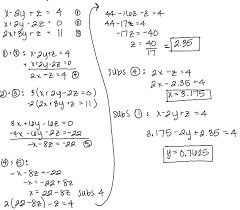 x-2y+z = 4 ①
x+2y-2z = 0 ②
2x+8y+z = 11 ③
①+②: x-2y+z=4
+ x+2y-2z=0
2x-z = 4 ④
②+③: 3(x+2y-2z=0)
-2(2x+8y+z=11)
-4x -16y -2z = -22
-x-8z = -22 ⑤
④+⑤:
-x-8z = -22
-x = -22+8z
x = 22-8z subs 4
2(22-8z)-z=4
44-16z-z = 4
44-17z = 4
-17z = -40
z = 40/17 = 2.35
subs ④: 2x-z=4
2x-2.35=4
x=3.175
subs ①: x-2y+z=4
3.175-2y+2.35=4
y=0.7625